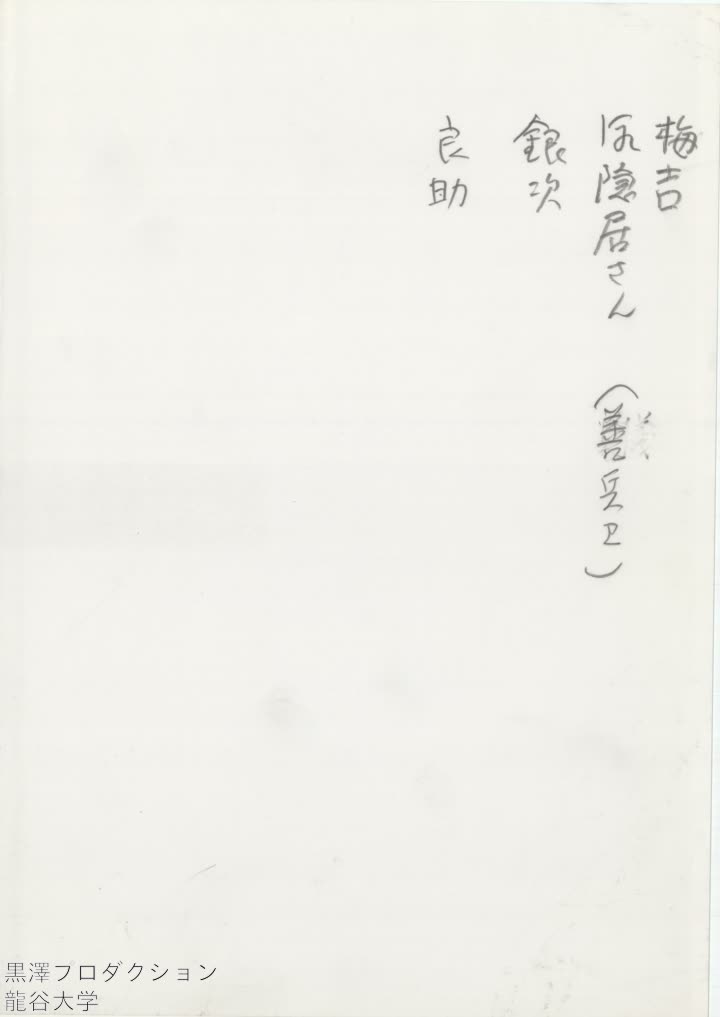 梅吉
御隠居さん (善兵卫)
銀次
良助
黒澤プロダクション
龍谷大学